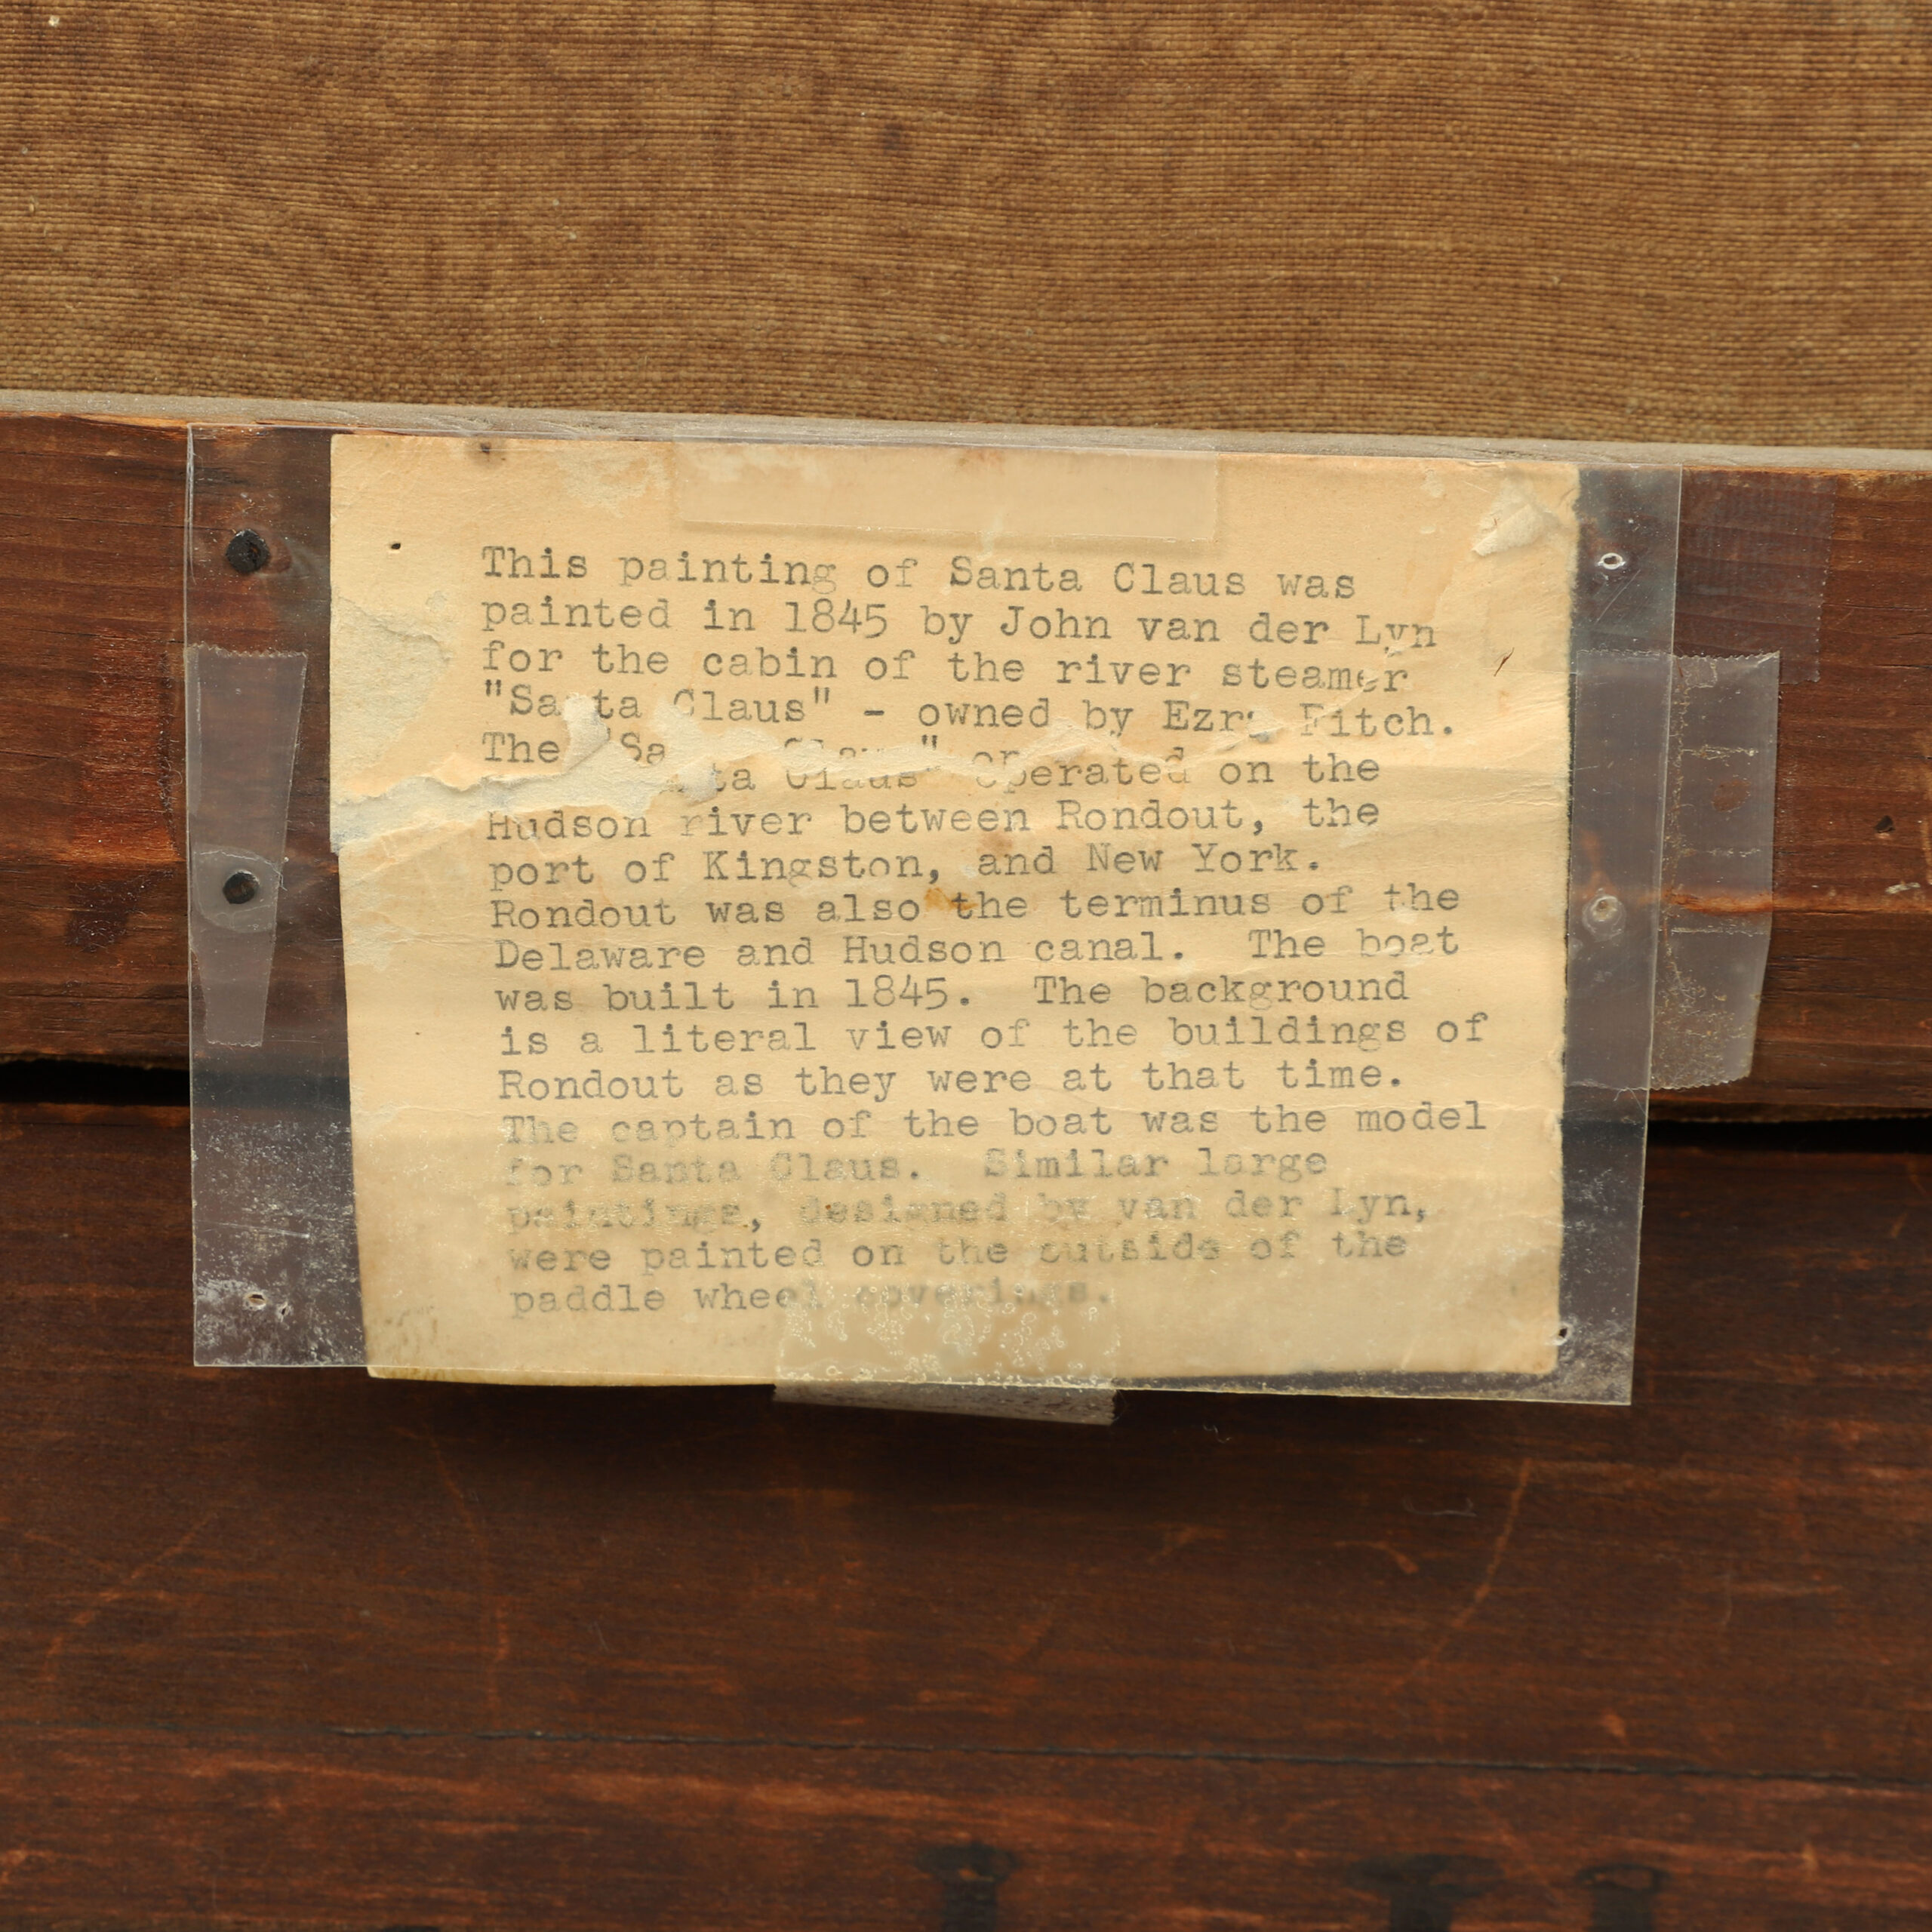 This painting of Santa Claus was
painted in 1845 by John van der Lyn
for the cabin of the river steamer
"Santa Claus" - owned by Ezra Fitch.
The "Santa Claus" operated on the
Hudson river between Rondout, the
port of Kingston, and New York.
Rondout was also the terminus of the
Delaware and Hudson canal. The boat
was built in 1845. The background
is a literal view of the buildings of
Rondout as they were at that time.
The captain of the boat was the model
for Santa Claus. Similar large
paintings, designed by van der Lyn,
were painted on the outside of the
paddle wheel coverings.